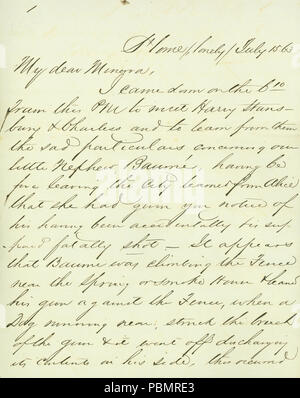 At Home (lonely) July 1863
My dear Minora,
I came down on the 6 10
from this PM to meet Harry Stans
bury & Charless and to learn from them
the sad particulars concerning our
little Nephew Baume, having be
fore leaving the City learned from Alice
that she had given you notice of
his having been accidentally his sup
posed fatally shot – It appears
that Baume was climbing the Fence
near the Spring or smoke House & leaned
his gun against the Fence, when a
Dog running near, struck the breech
of the gun & it went off discharging
its contents in his side, this occurred
alamy
Image ID: PBMRE3
www.alamy.com